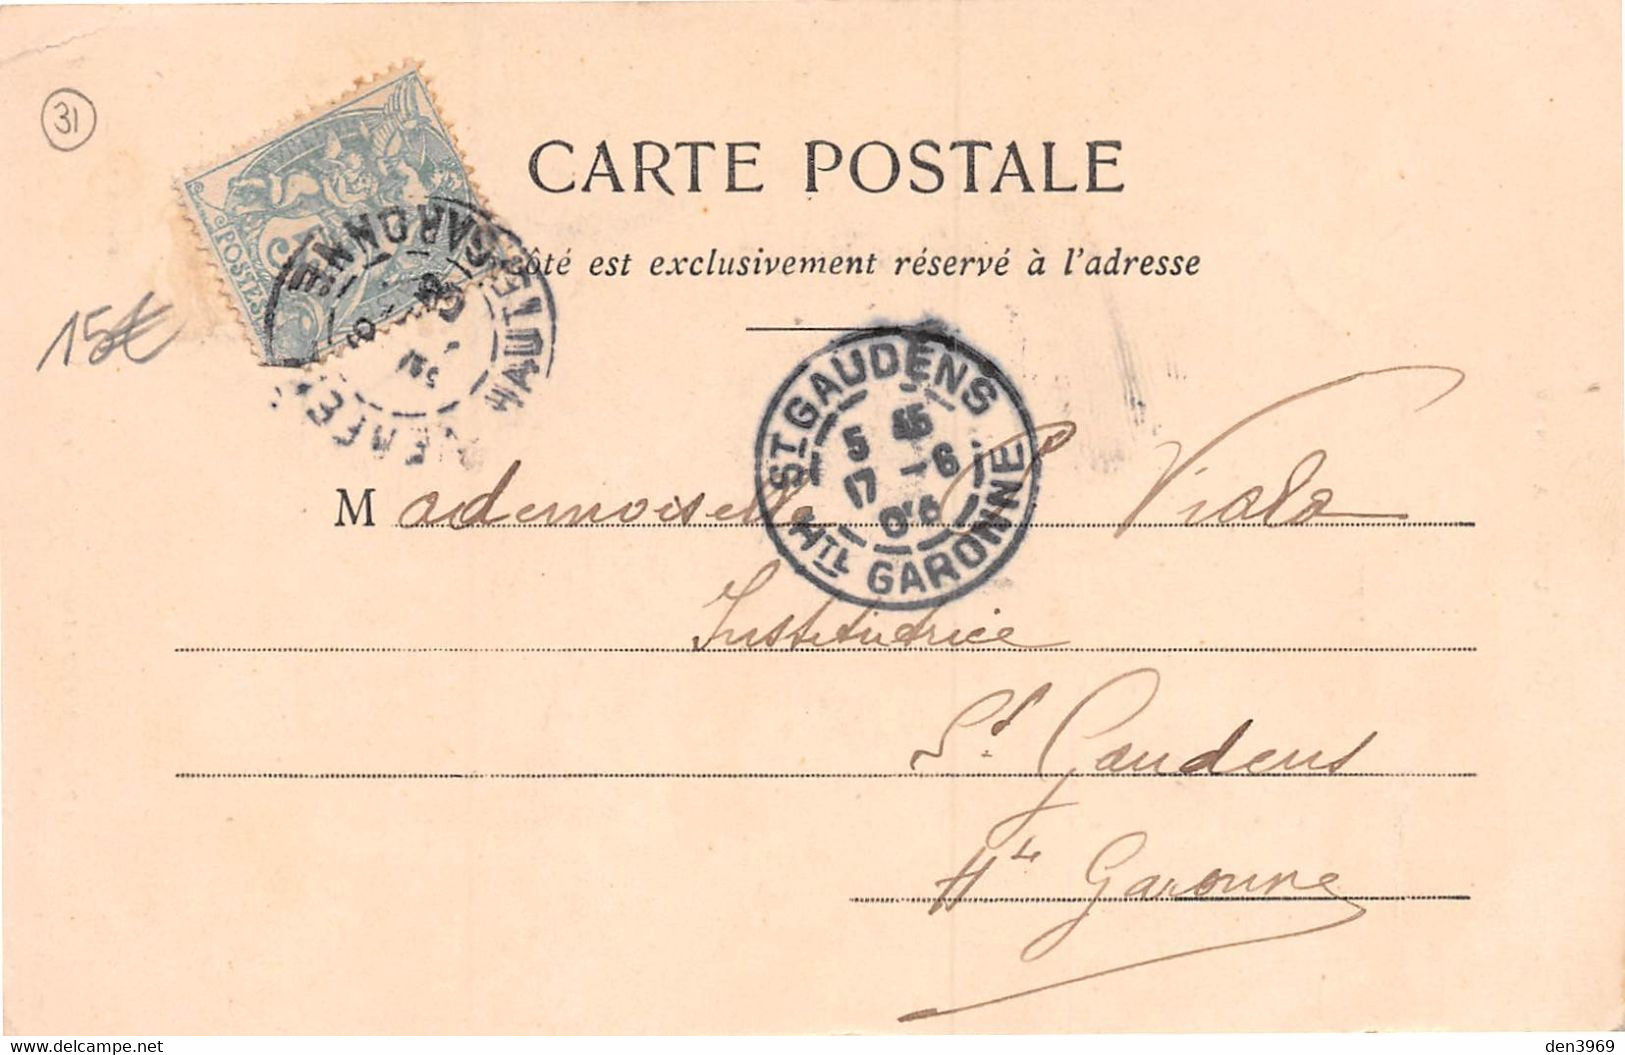 31
CARTE POSTALE
côté est exclusivement réservé à l'adresse
15€
POSTES
HAUTE GARONNE
ST GAUDENS
5 45
17 - 6
06
HTE GARONNE
Mademoiselle Viala
Institutrice
St Gaudens
Hte Garonne
den3969